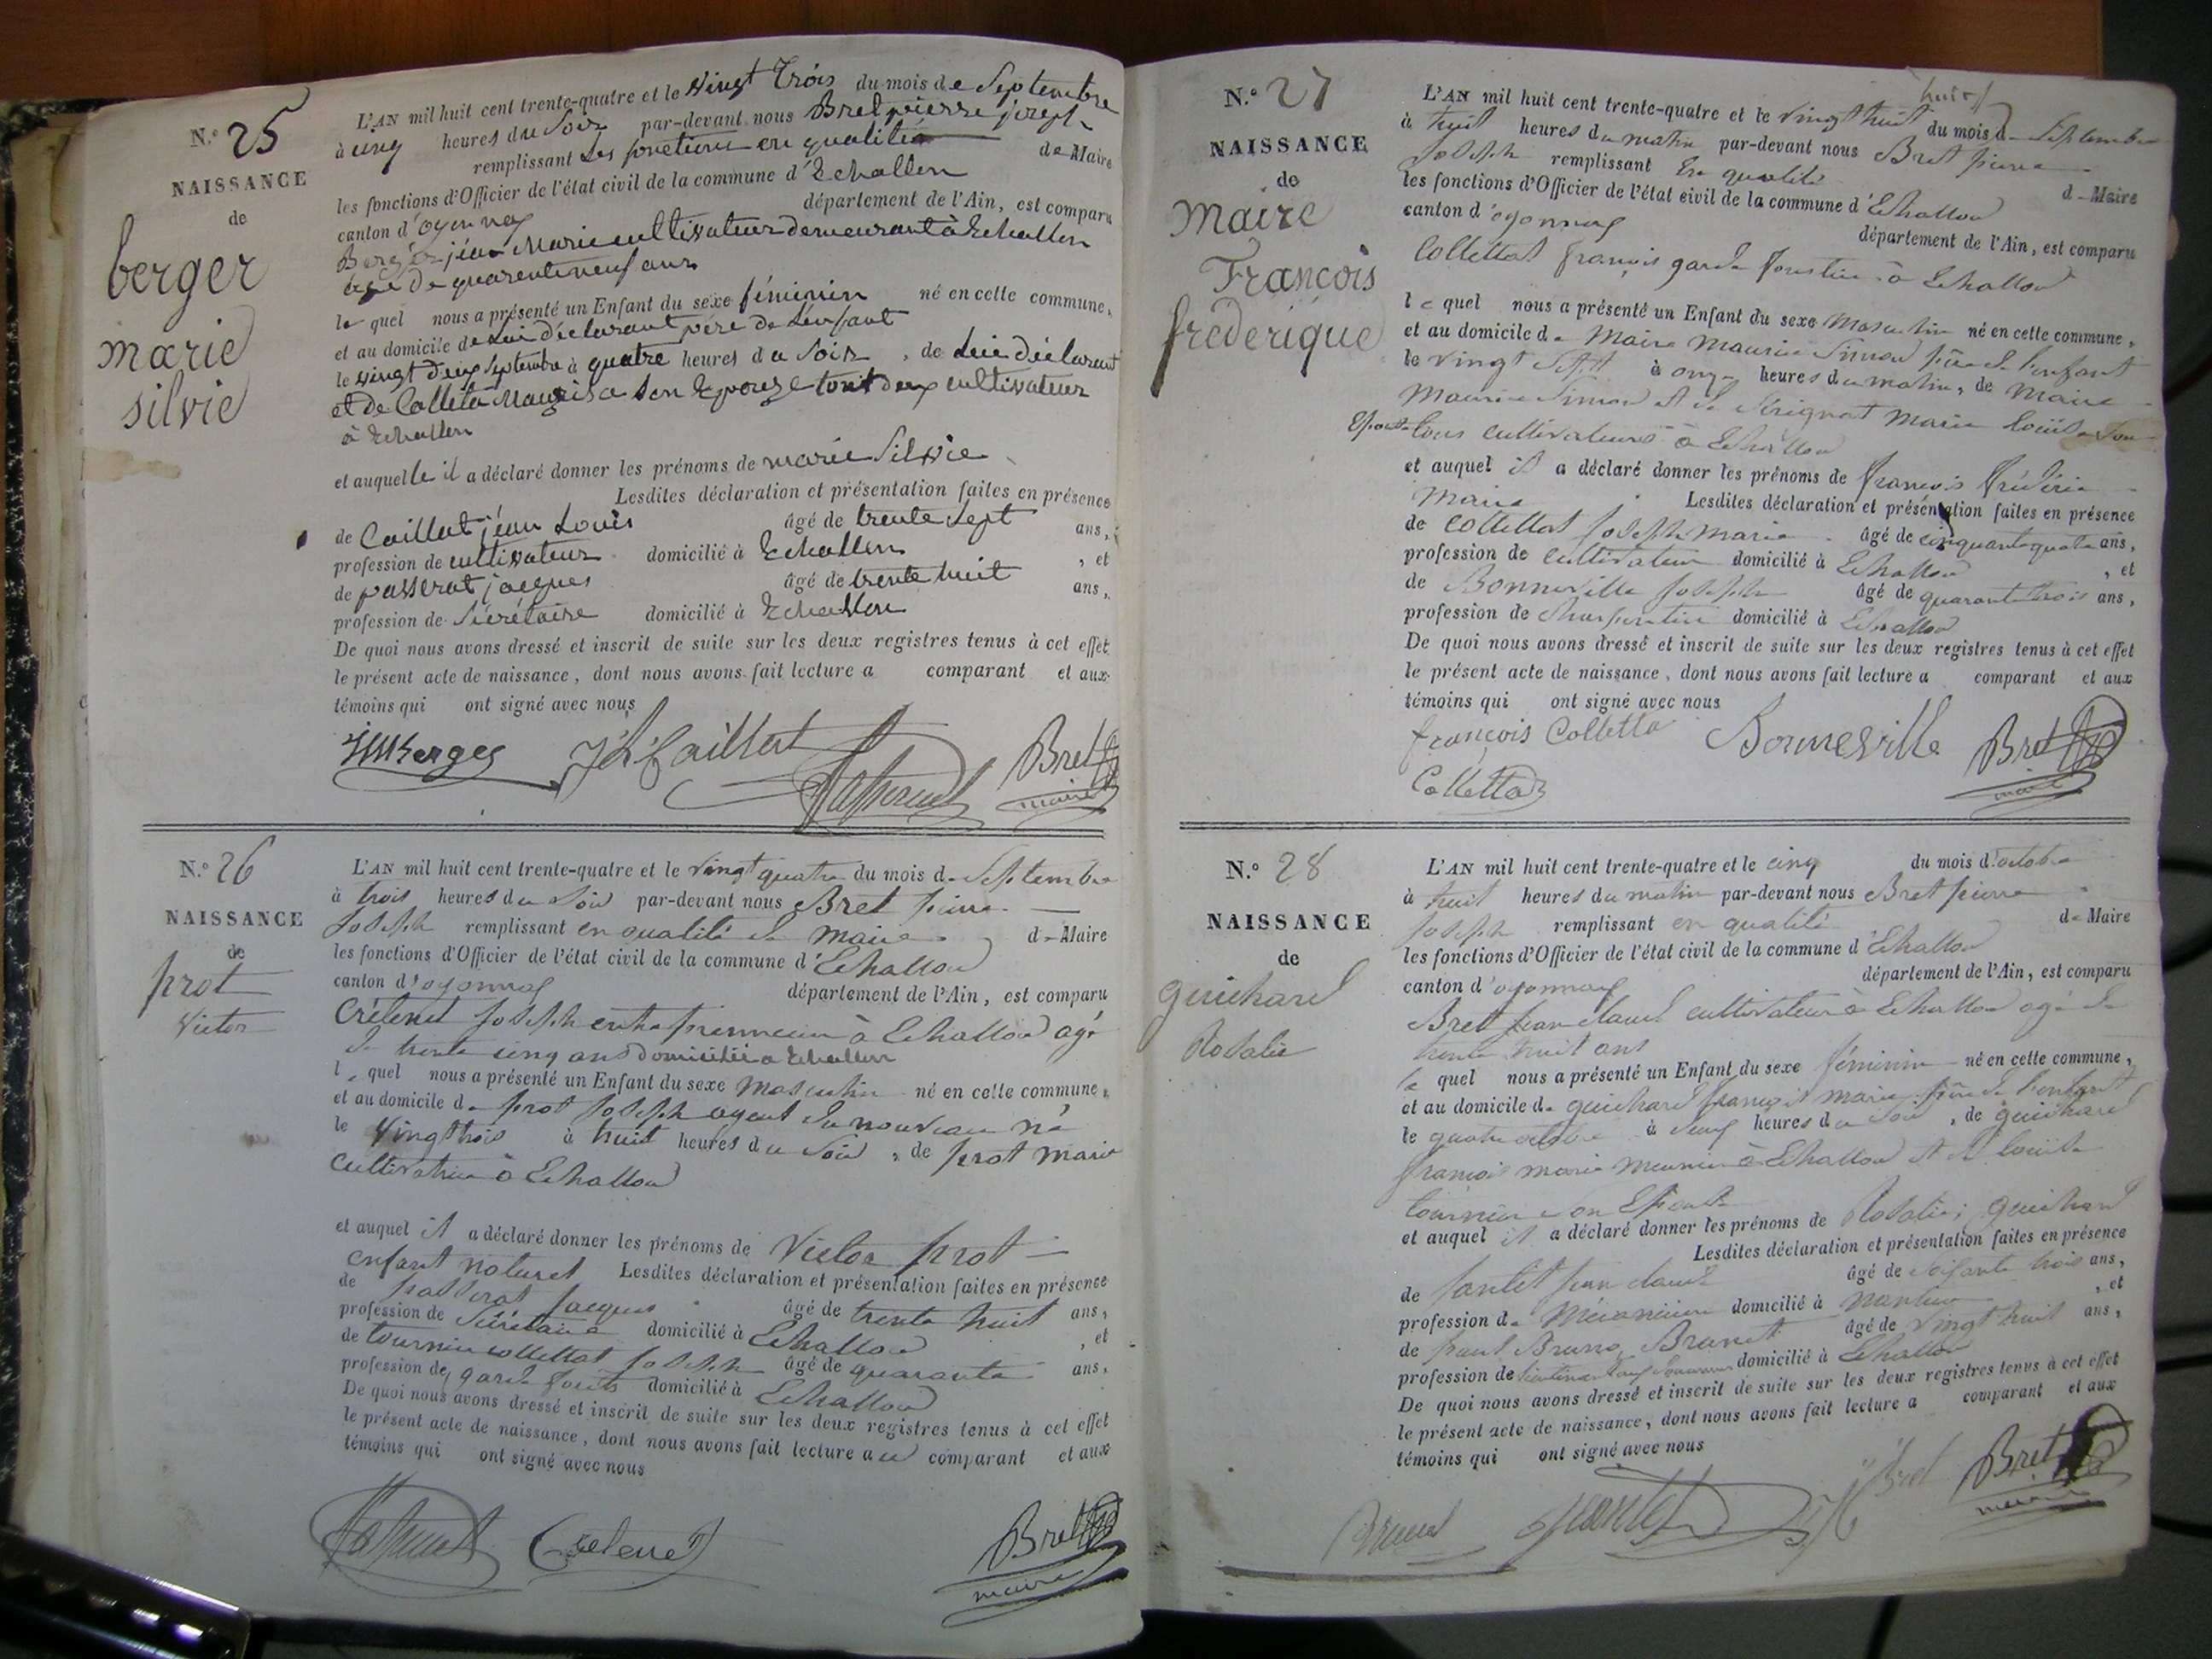 N.º 25
NAISSANCE
de
berger
marie
silvie
L'AN mil huit cent trente-quatre et le vingt trois du mois de Septembre
à cinq heures du Soir par-devant nous Bret pierre joseph
remplissant Les fonctions en qualité de Maire
les fonctions d'Officier de l'état civil de la commune d'Echallon
canton d'oyonnax département de l'Ain, est comparu
Berger jéan Marie cultivateur demeurant à Echallon
âgé de quarente neuf ans
le quel nous a présenté un Enfant du sexe féminin né en cette commune,
et au domicile de Lui déclarant père de L'enfant
le vingt deux Septembre à quatre heures du Soir , de Lui déclarant
et de Colleta Maurisa Son Epouse tout deux cultivateur
à Echallon
et auquelle il a déclaré donner les prénoms de marie Silvie
Lesdites déclaration et présentation faites en présence
de Caillat jéan Louis âgé de trente Sept ans,
profession de cultivateur domicilié à Echallon , et
de passerat jacques âgé de trente huit ans,
profession de Sécrétaire domicilié à Echallon
De quoi nous avons dressé et inscrit de suite sur les deux registres tenus à cet effet
le présent acte de naissance, dont nous avons fait lecture a comparant et aux
témoins qui ont signé avec nous
JM Berger J L Caillat Passerat Bret
maire
N.º 26
NAISSANCE
de
prot
Victor
L'AN mil huit cent trente-quatre et le Vingt quatre du mois de Septembre
à trois heures du Soir par-devant nous Bret pierre
Joseph remplissant en qualité de maire de Maire
les fonctions d'Officier de l'état civil de la commune d'Echallon
canton d'oyonnax département de l'Ain, est comparu
Crétenet Joseph entreprenneur à Echallon agé
de trente cinq ans domicilié a Echallon
le quel nous a présenté un Enfant du sexe masculin né en cette commune,
et au domicile de prot Joseph ayeul du nouveau né
le Vingt trois à huit heures du Soir , de prot marie
Cultivatrice à Echallon
et auquel il a déclaré donner les prénoms de Victor prot
enfant naturel Lesdites déclaration et présentation faites en présence
de passerat Jacques âgé de trente huit ans,
profession de Sécrétaire domicilié à Echallon , et
de tournier collettat Joseph âgé de quarante ans,
profession de garde forets domicilié à Echallon
De quoi nous avons dressé et inscrit de suite sur les deux registres tenus à cet effet
le présent acte de naissance, dont nous avons fait lecture au comparant et aux
témoins qui ont signé avec nous
Passerat Cretenet Bret
maire
N.º 27
NAISSANCE
de
Maire
François
fréderique
huit
L'AN mil huit cent trente-quatre et le Vingt huit du mois de Septembre
à huit heures du matin par-devant nous Bret pierre
Joseph remplissant En qualité de Maire
les fonctions d'Officier de l'état civil de la commune d'Echallon
canton d'oyonnax département de l'Ain, est comparu
Collettat françois garde forestier à Echallon
le quel nous a présenté un Enfant du sexe Masculin né en cette commune,
et au domicile de Maire Maurice Simon père de l'enfant
le vingt Sept à onze heures du matin, de Maire
Maurice Simon et de Sérignat Marie louïse Son
Epouse tous cultivateurs à Echallon
et auquel il a déclaré donner les prénoms de François Frédéric
Maire Lesdites déclaration et présentation faites en présence
de Collettat Joseph Marie âgé de cinquante quatre ans,
profession de cultivateur domicilié à Echallon , et
de Bonneville Joseph âgé de quarante trois ans,
profession de Charpentier domicilié à Echallon
De quoi nous avons dressé et inscrit de suite sur les deux registres tenus à cet effet
le présent acte de naissance, dont nous avons fait lecture a comparant et aux
témoins qui ont signé avec nous
françois Colletta Bonneville Bret
Colletta maire
N.º 28
NAISSANCE
de
guichard
Rosalie
L'AN mil huit cent trente-quatre et le cinq du mois d'octobre
à huit heures du matin par-devant nous Bret pierre
Joseph remplissant en qualité de Maire
les fonctions d'Officier de l'état civil de la commune d'Echallon
canton d'oyonnax département de l'Ain, est comparu
Bret jean claude cultivateur à Echallon agé de
trente huit ans
le quel nous a présenté un Enfant du sexe féminin né en cette commune,
et au domicile de guichard françois marie père de l'enfant
le quatre octobre à neuf heures du Soir , de guichard
françois marie meunier à Echallon et de louïse
tournier son Epouse
et auquel il a déclaré donner les prénoms de Rosalie, guichard
Lesdites déclaration et présentation faites en présence
de jantet jean claude âgé de soixante trois ans,
profession de Mécanicien domicilié à nantua , et
de paul Bruno Brunet âgé de Vingt huit ans,
profession de domicilié à Echallon
De quoi nous avons dressé et inscrit de suite sur les deux registres tenus à cet effet
le présent acte de naissance, dont nous avons fait lecture a comparant et aux
témoins qui ont signé avec nous
Brunet Jantet Bret Bret
maire